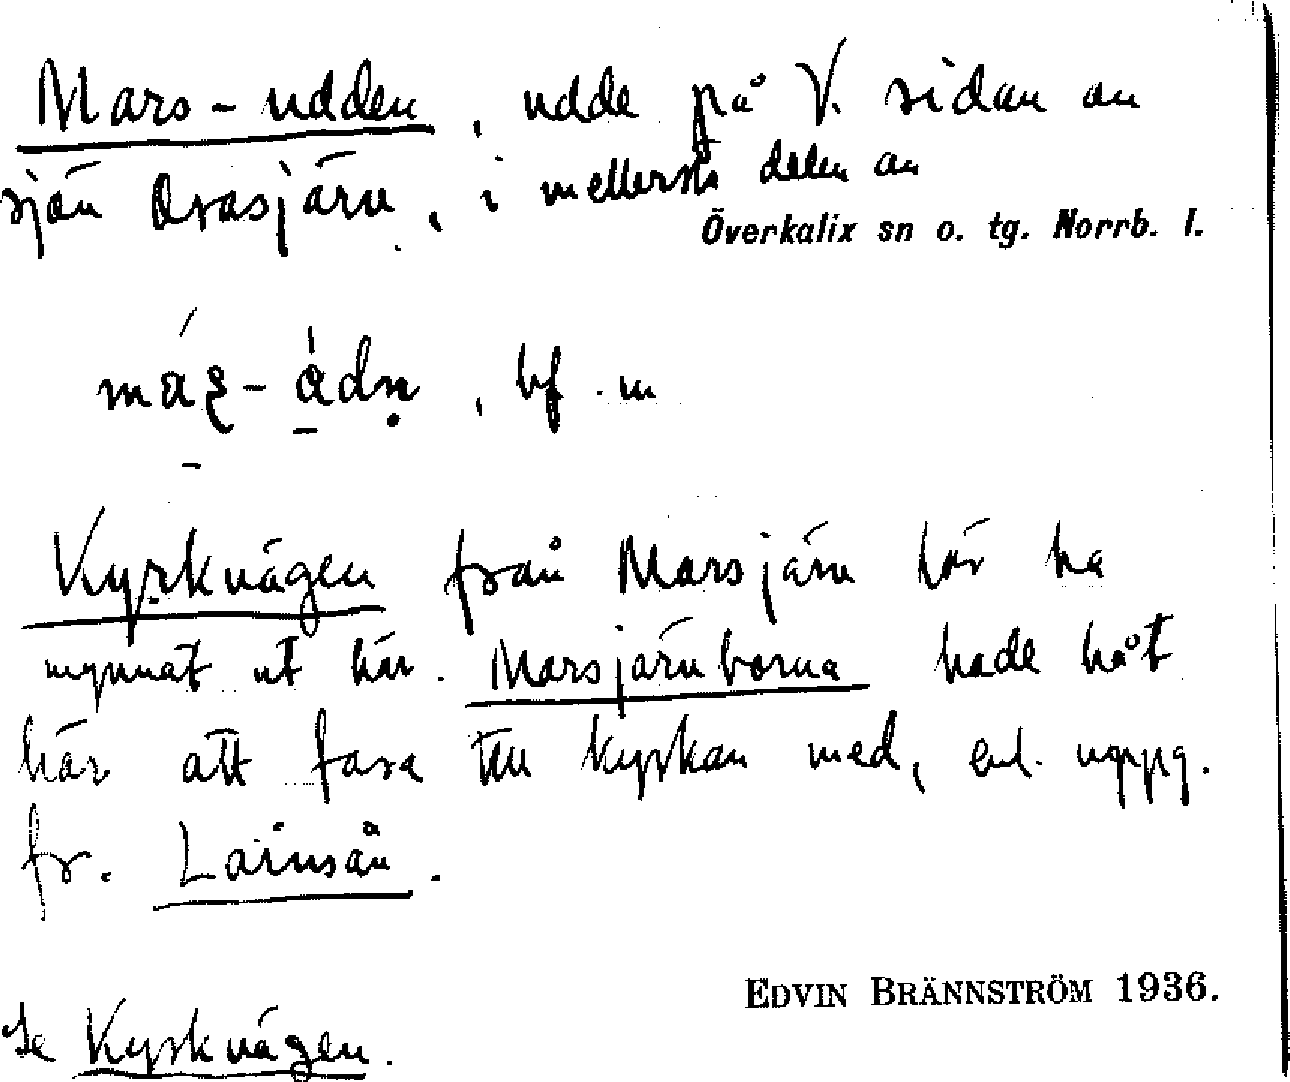 Mars-udden, udde på V. sidan av
sjön Orasjärv, i mellersta delen av
Överkalix sn o. tg. Norrb. l.
bf. m
Kyrkvägen från Marsjärv lär ha
mynnat ut här. Marsjärvborna hade båt
här att fara till kyrkan med, enl. uppg.
fr. Lainsån.
EDVIN BRÄNNSTRÖM 1936.
Se Kyrkvägen.